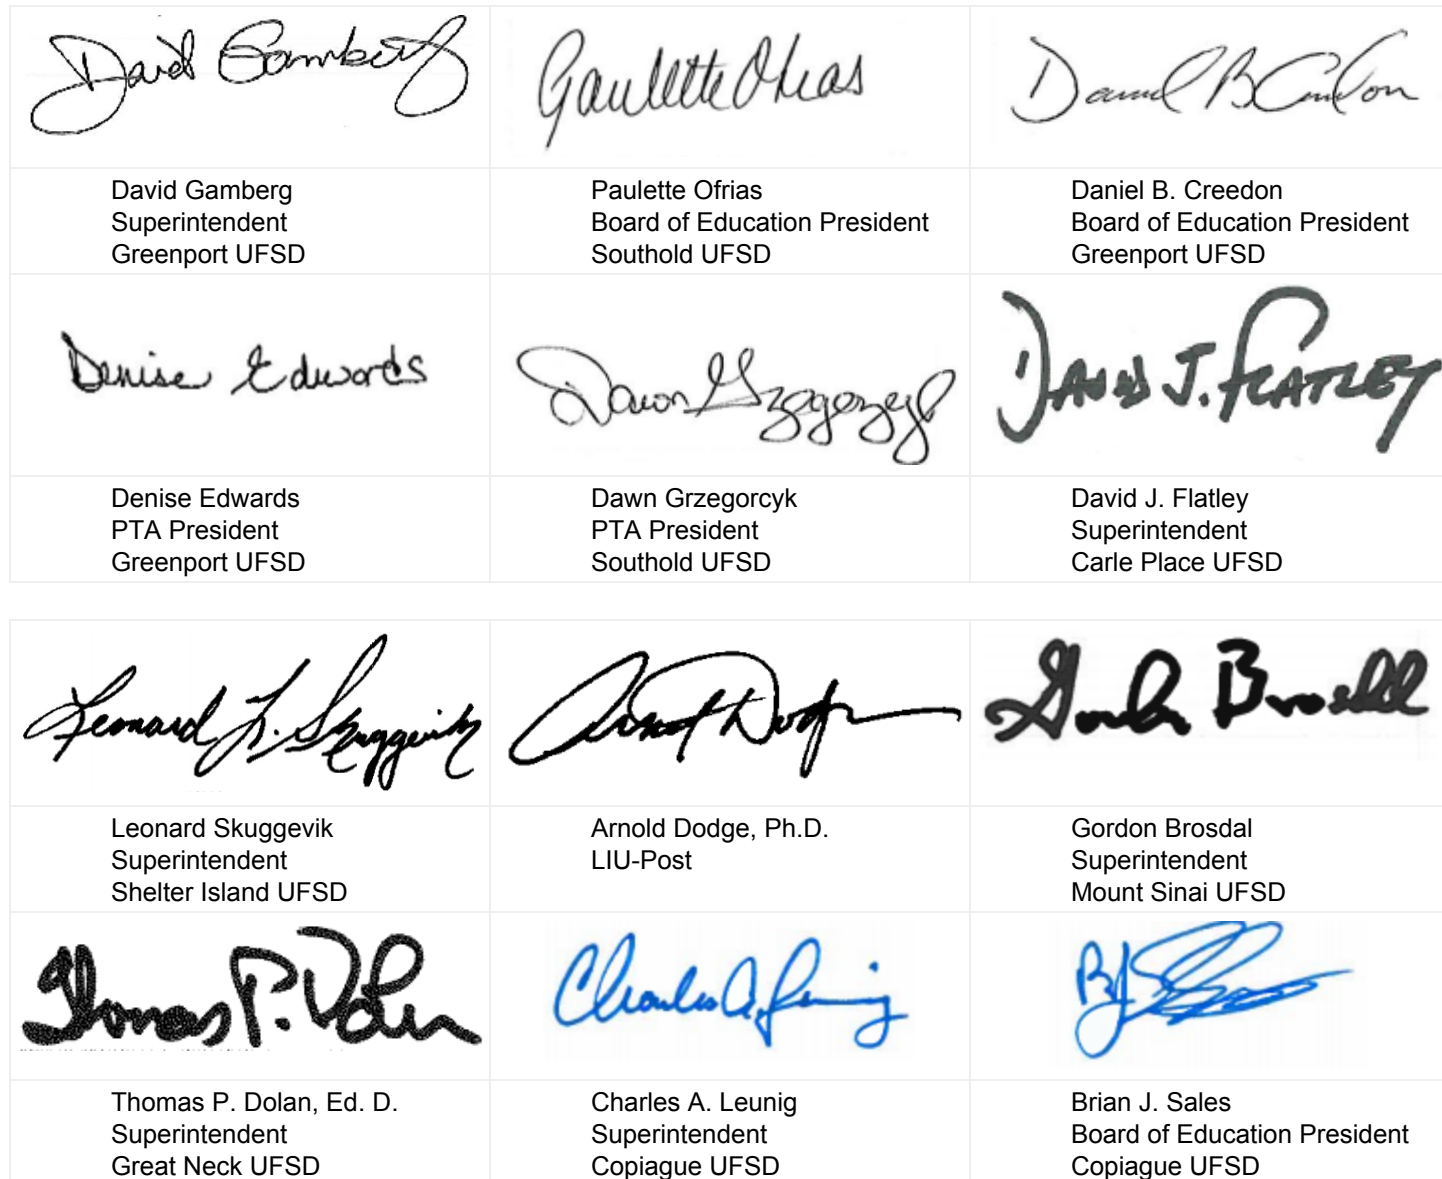 David Gamberg
Paulette Ofrias
Daniel B Creedon
David Gamberg
Superintendent
Greenport UFSD
Paulette Ofrias
Board of Education President
Southold UFSD
Daniel B. Creedon
Board of Education President
Greenport UFSD
Denise Edwards
Dawn Grzegorcyk
David J. Flatley
Denise Edwards
PTA President
Greenport UFSD
Dawn Grzegorcyk
PTA President
Southold UFSD
David J. Flatley
Superintendent
Carle Place UFSD
Leonard L. Skuggevik
Arnold Dodge
Gordon Brosdal
Leonard Skuggevik
Superintendent
Shelter Island UFSD
Arnold Dodge, Ph.D.
LIU-Post
Gordon Brosdal
Superintendent
Mount Sinai UFSD
Thomas P. Dolan
Charles A. Leunig
Thomas P. Dolan, Ed. D.
Superintendent
Great Neck UFSD
Charles A. Leunig
Superintendent
Copiague UFSD
Brian J. Sales
Board of Education President
Copiague UFSD